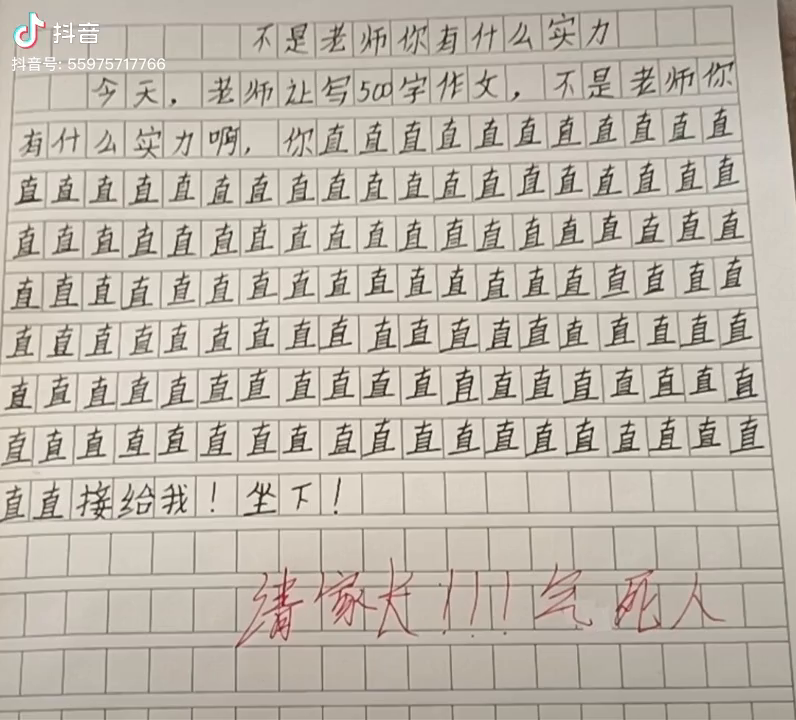 抖音
抖音号: 55975717766
不是老师你有什么实力
今天，老师让写500字作文，不是老师你
有什么实力啊，你直直直直直直直直直直直
直直直直直直直直直直直直直直直直直直直
直直直直直直直直直直直直直直直直直直直
直直直直直直直直直直直直直直直直直直直
直直直直直直直直直直直直直直直直直直直
直直直直直直直直直直直直直直直直直直直
直直直直直直直直直直直直直直直直直直直
直直接给我！坐下！
请家长!!!气死人